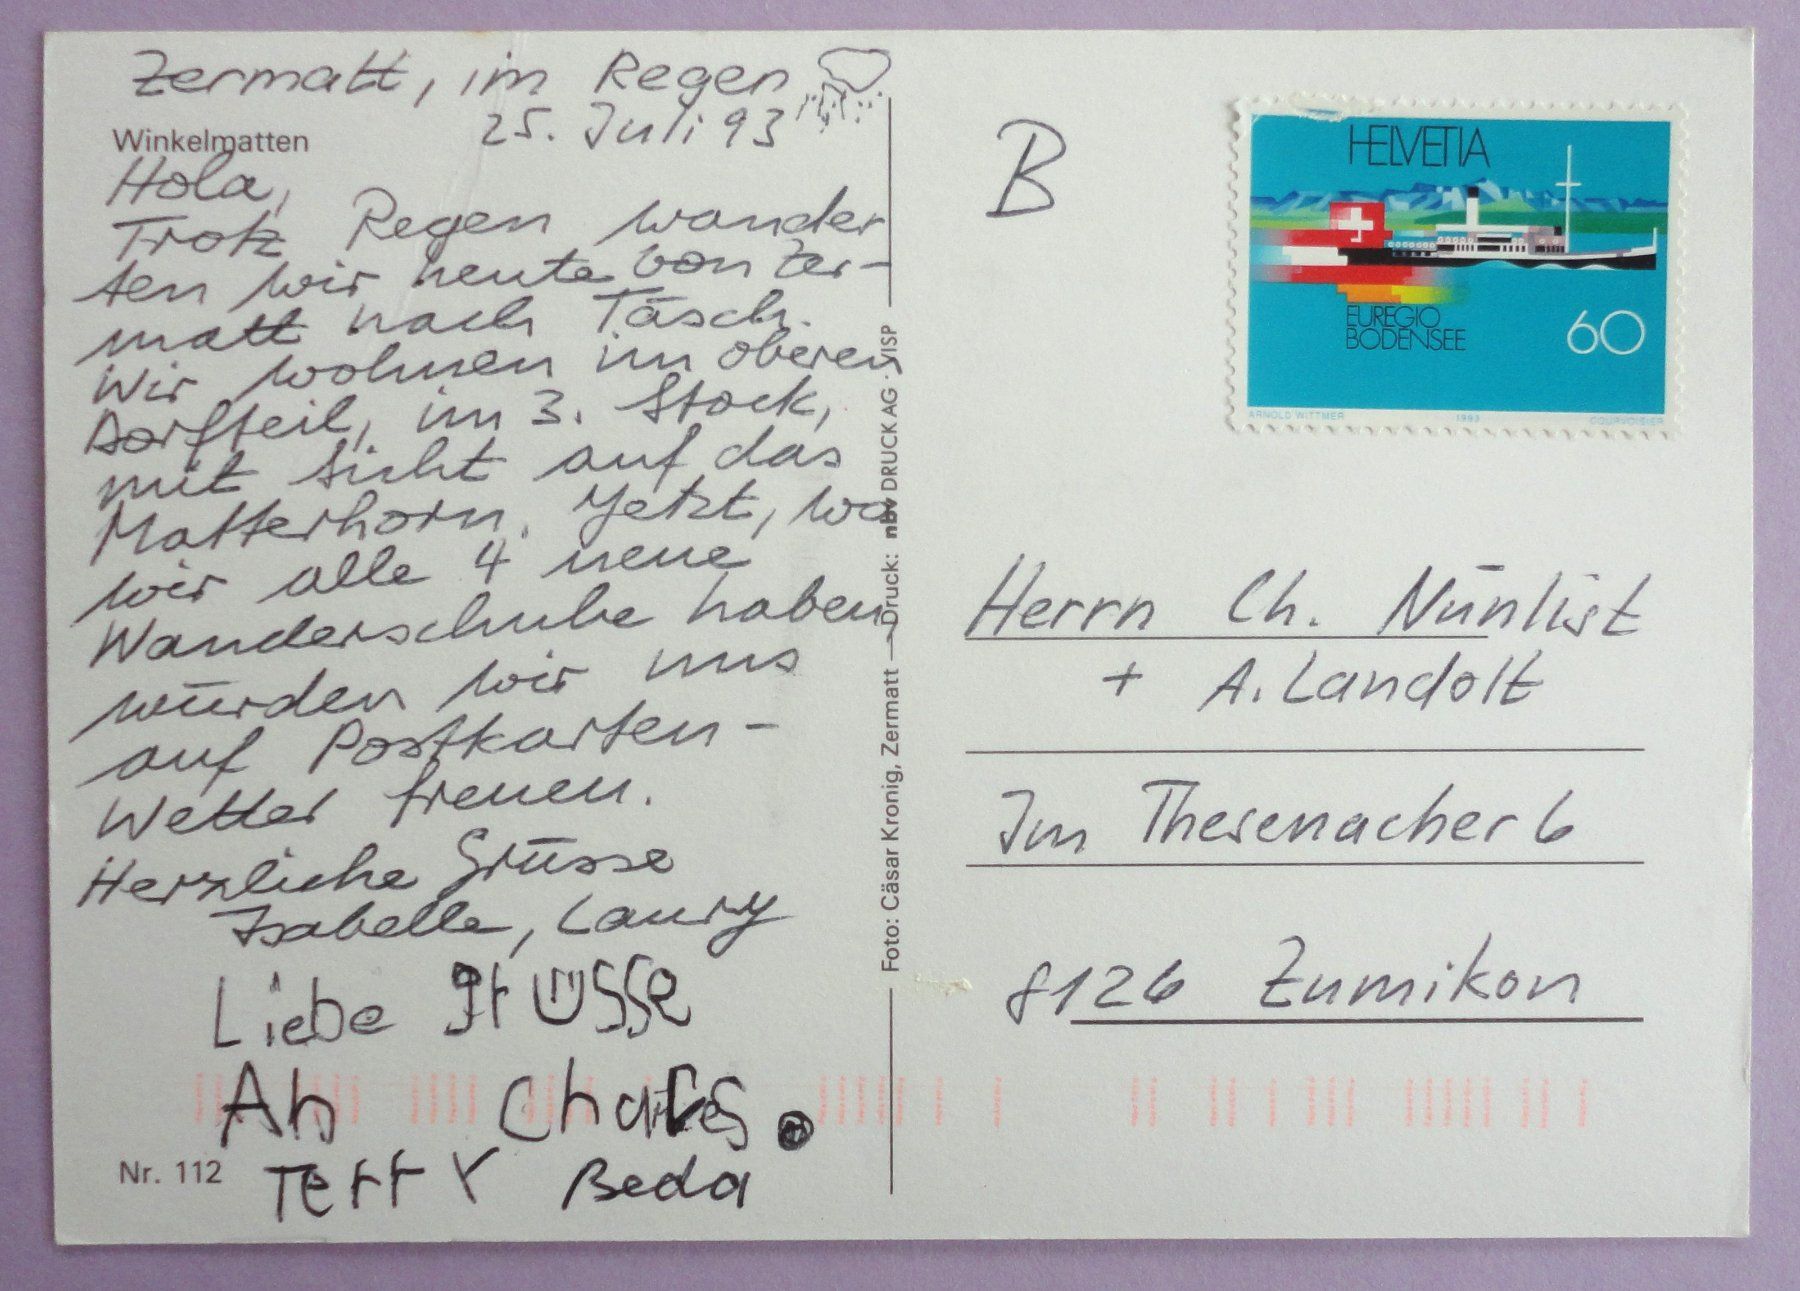 Zermatt, im Regen
25. Juli 93
Winkelmatten
Hola,
Trotz Regen wander
ten wir heute von Zer-
matt nach Täsch.
Wir wohnen im oberen
Dorfteil, im 3. Stock,
mit Sicht auf das
Matterhorn. Jetzt, wo
wir alle 4 neue
Wanderschuhe haben
würden wir uns
auf Postkarten-
Wetter freuen.
Herzliche Grüsse
Isabelle, Laury
Liebe grüsse
An
Terry Beda
Nr. 112
Foto: Cäsar Kronig, Zermatt — Druck: nbv DRUCK AG · VISP
B
HELVETIA
EUREGIO
BODENSEE
60
ARNOLD WITTMER 1993 COURVOISIER
Herrn Ch. Nünlist
+ A. Landolt
Im Thesenacher 6
8126 Zumikon